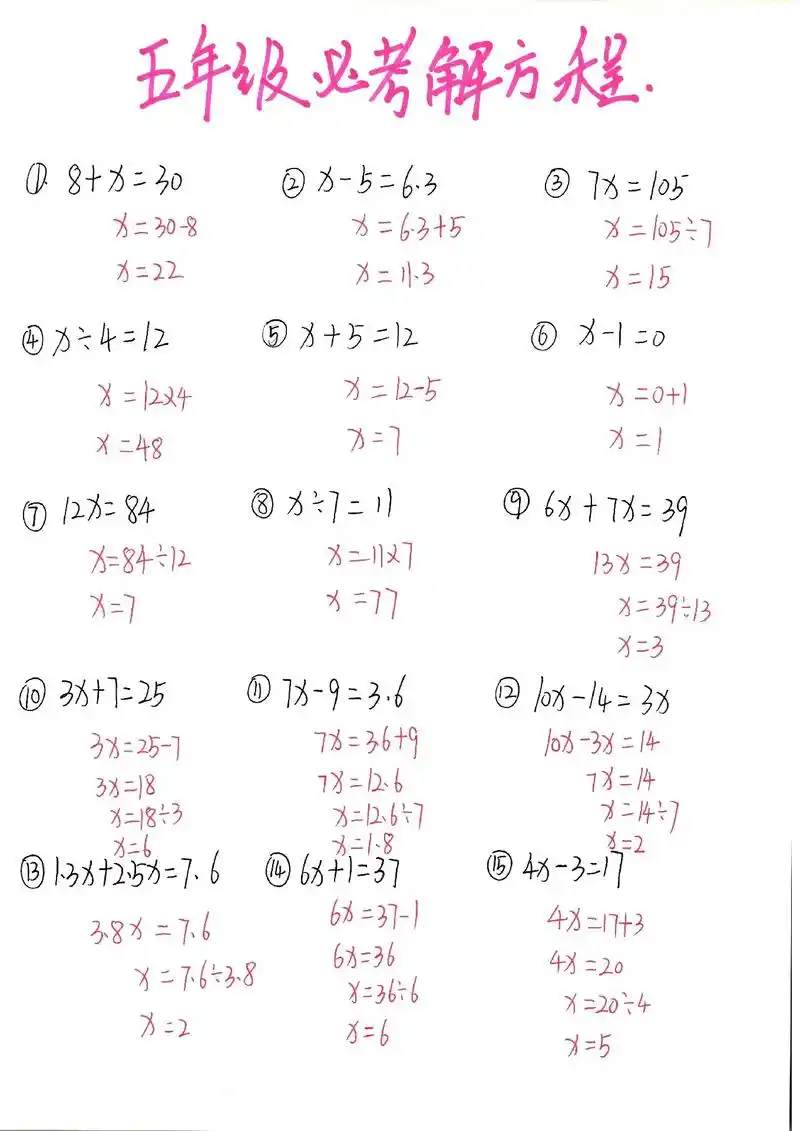 五年级必考解方程.
① 8+x=30
x=30-8
x=22
② x-5=6.3
x=6.3+5
x=11.3
③ 7x=105
x=105÷7
x=15
④ x÷4=12
x=12×4
x=48
⑤ x+5=12
x=12-5
x=7
⑥ x-1=0
x=0+1
x=1
⑦ 12x=84
x=84÷12
x=7
⑧ x÷7=11
x=11×7
x=77
⑨ 6x+7x=39
13x=39
x=39÷13
x=3
⑩ 3x+7=25
3x=25-7
3x=18
x=18÷3
x=6
⑪ 7x-9=3.6
7x=3.6+9
7x=12.6
x=12.6÷7
x=1.8
⑫ 10x-14=3x
10x-3x=14
7x=14
x=14÷7
x=2
⑬ 1.3x+2.5x=7.6
3.8x=7.6
x=7.6÷3.8
x=2
⑭ 6x+1=37
6x=37-1
6x=36
x=36÷6
x=6
⑮ 4x-3=17
4x=17+3
4x=20
x=20÷4
x=5